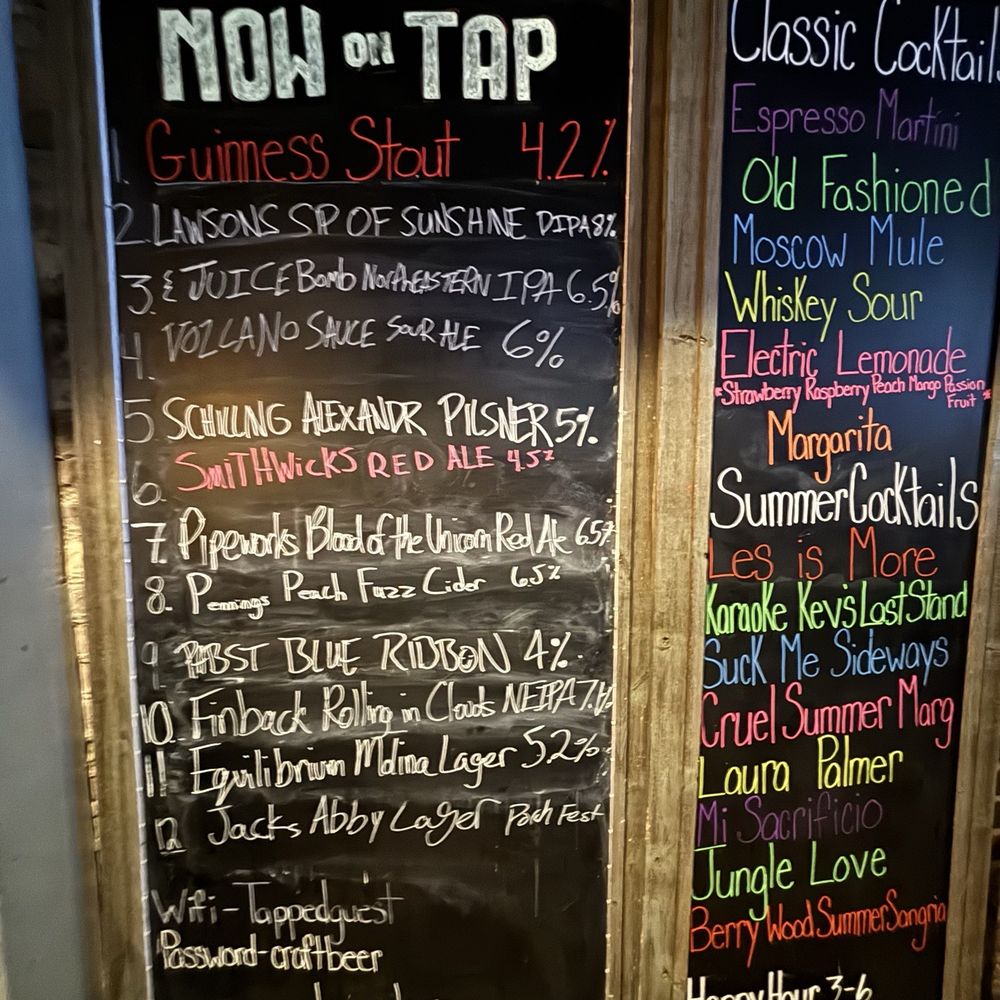 NOW ON TAP
1. Guinness Stout 4.2%
2. LAWSONS SIP OF SUNSHINE DIPA 8%
3. & JUICE Bomb NorthEASTERN IPA 6.5%
4. VOLCANO SAUCE SOUR ALE 6%
5 SCHILLING ALEXANDR PILSNER 5%.
6. SMITHWICKS RED ALE 4.5%
7. Pipeworks Blood of the Unicorn Red Ale 6.5%
8. Pennings Peach Fuzz Cider 6.5%
9. PABST BLUE RIBBON 4%.
10. Finback Rolling in Clouds NEIPA
11. Equilibrium Mdina Lager 5.2%
12. Jacks Abby Lager Porch Fest
Wifi - Tappedguest
Password - craftbeer
Classic Cocktails
Espresso Martini
Old Fashioned
Moscow Mule
Whiskey Sour
Electric Lemonade
*Strawberry Raspberry Peach Mango Passion
Fruit *
Margarita
Summer Cocktails
Les is More
Karaoke Kev's Last Stand
Suck Me Sideways
Cruel Summer Marg
Laura Palmer
Mi Sacrificio
Jungle Love
Berry Wood Summer Sangria
Happy Hour 3-6